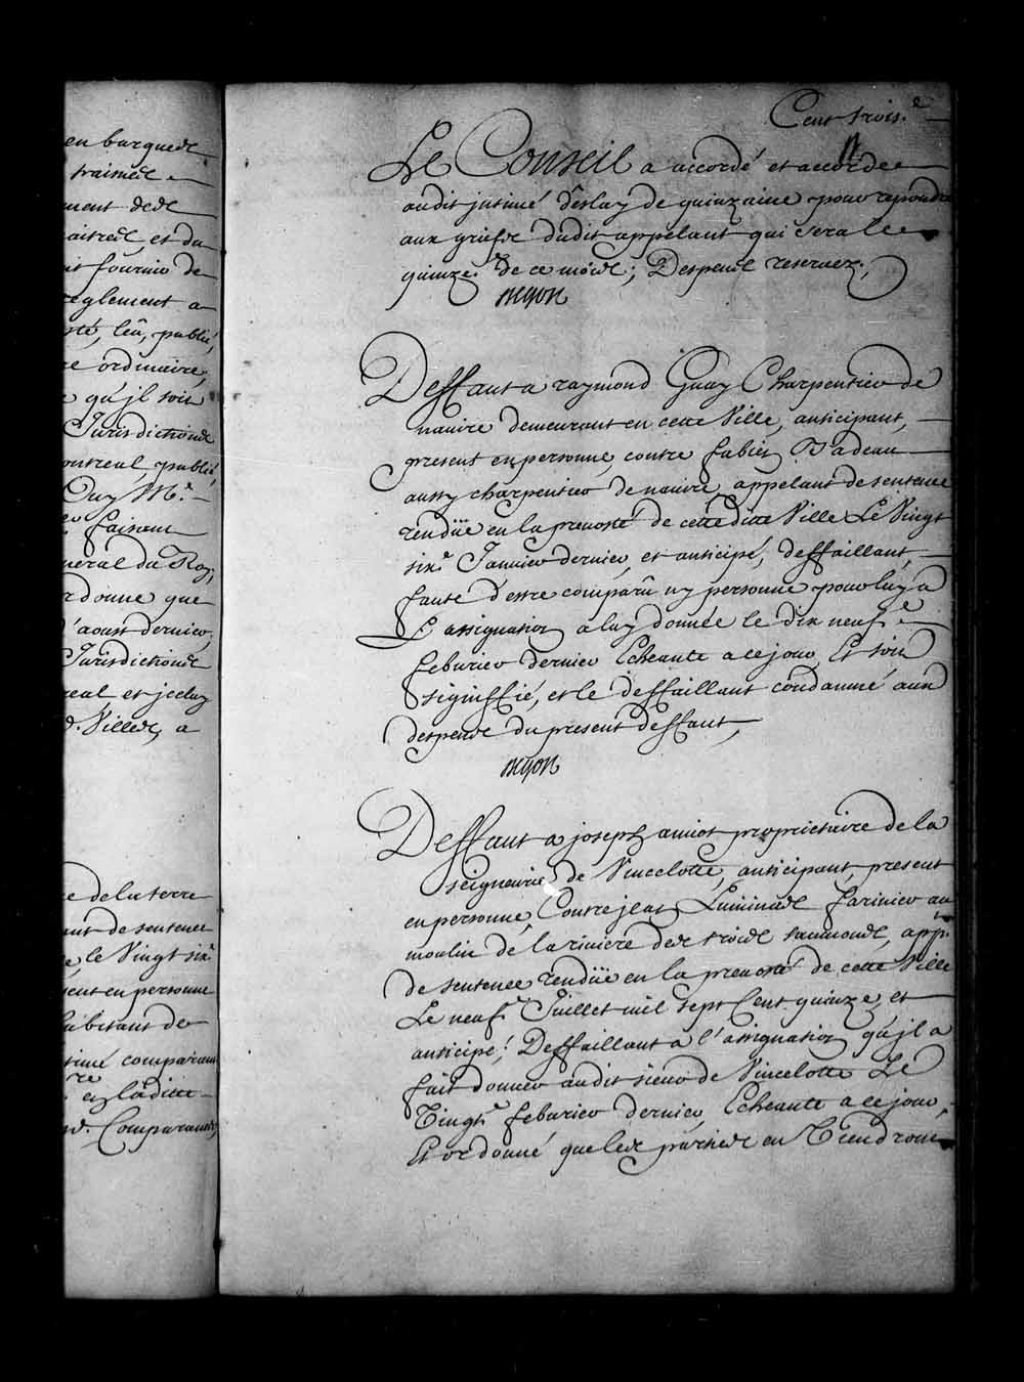 en barque et
traisnée
ment de et
aistres, et du
it fournir de
reglement a
sté, leu, publié,
re ordinaire,
e qu'jl soit
Jurisdictions
ontreal, publié,
Ouy Mr.
faisant
neral du Roy,
rdonne que
d'aoust dernier,
Jurisdictions
real et jceluy
Villes, a
re de la terre
ant de sentence
e, le Vingt six.e
sent en personne
habitant de
timé comparant
en laditte
Comparants,
Cent trois.e
Le Conseil a accordé et accorde
audit jntimé deslay de quinzaine pour repondre
aux griefs dudit appelant qui sera le
quinze.e de ce mois; Despens reservez;
Begon
Deffaut a raymond Guay Charpentier de
navire demeurant en cette Ville, anticipant,
present en personne, contre fabien Badeau
aussy charpentier de navire, appelant de sentence
rendüe en la prevosté de cette ditte Ville Le Vingt
six.e Janvier dernier, et anticipé, deffaillant,
faute d'estre comparû ny personne pour luy a
L'assignation a luy donnée le dix neuf.e
feburier dernier Echeante a ce jour, Et soit
signiffié, et le deffaillant condamné aux
despens du present deffaut,
Begon
Deffaut a joseph amiot proprietaire de la
seigneurie de Vincelotte, anticipant, present
en personne, Contre jean Luminas farinier au
moulin de la riviere des trois saumons, app.
de sentence rendüe en la prevosté de cette Ville
Le neuf.e Juillet mil sept Cent quinze, et
anticipé; Deffaillant a l'assignation qu'jl a
fait donner audit sieur de Vincelotte Le
Vingt.e feburier dernier, Echeante a ce jour,
Et ordonné que les parties en Viendront